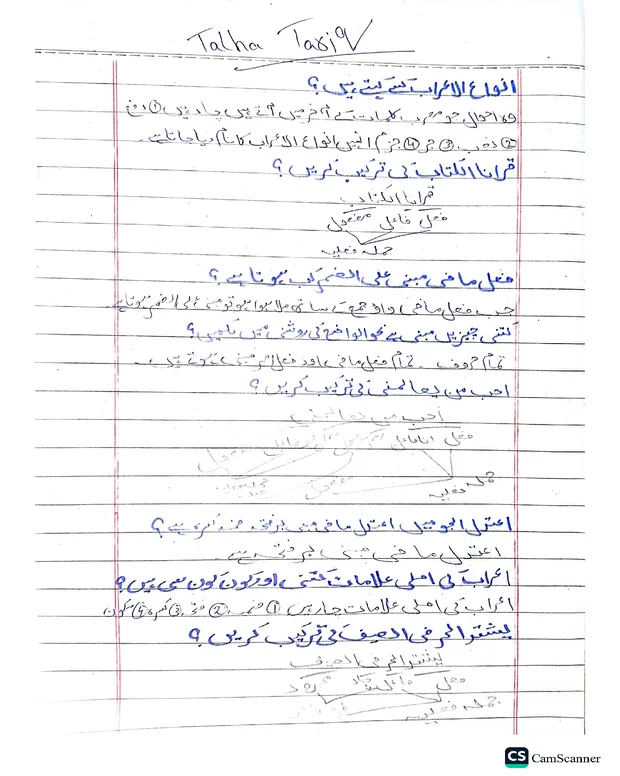 Talha Tariq
انواع الاعراب کسے کہتے ہیں؟
وہ احوال جو معرب کلمات کے آخر میں آتے ہیں چار ہیں ① رفع
② نصب ③ جر ④ جزم انہیں انواع الاعراب کا نام دیا جاتا ہے۔
قرانا الکتاب کی ترکیب کریں؟
قرانا الکتاب
فعل فاعل مفعول
جملہ فعلیہ
فعل ماضی مبنی علی الضم کب ہوتا ہے؟
جب فعل ماضی واو جمع کے ساتھ ملا ہوا ہو تو مبنی علی الضم ہوتا ہے
کتنی چیزیں مبنی ہے نحو الواضح کی روشنی میں لکھیں؟
تمام حروف ۔ تمام فعل ماضی اور فعل امر مبنی ہوتے ہیں۔
احب من يعاملنی کی ترکیب کریں؟
أحب من يعاملنی
فعل انا فاعل
جملہ فعلیہ
اعتدل الجو میں اعتدل ماضی مبنی بر فتحہ ہے؟
اعتدل ماضی مبنی بر فتحہ ہے۔
اعراب کی اصلی علامات کتنی اور کون کون سی ہیں؟
اعراب کی اصلی علامات چار ہیں ① ضمہ ② فتحہ ③ کسرہ ④ سکون
یشتد الحر فی الصیف کی ترکیب کریں؟
یشتد الحر فی الصیف
فعل فاعل جار مجرور
جملہ فعلیہ
CS CamScanner